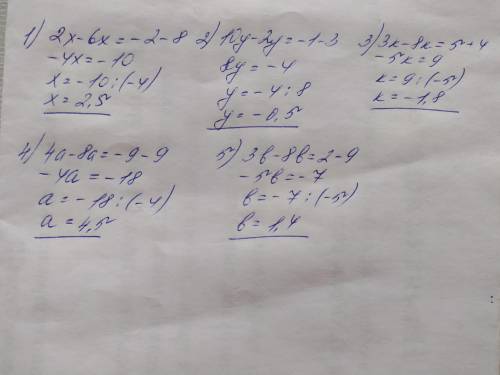 1) 2x-6x=-2-8
-4x=-10
x=-10:(-4)
x=2,5
2) 10y-2y=-1-3
8y=-4
y=-4:8
y=-0,5
3) 3к-8к=5+4
-5к=9
к=9:(-5)
к=-1,8
4) 4a-8a=-9-9
-4a=-18
a=-18:(-4)
a=4,5
5) 3в-8в=2-9
-5в=-7
в=-7:(-5)
в=1,4